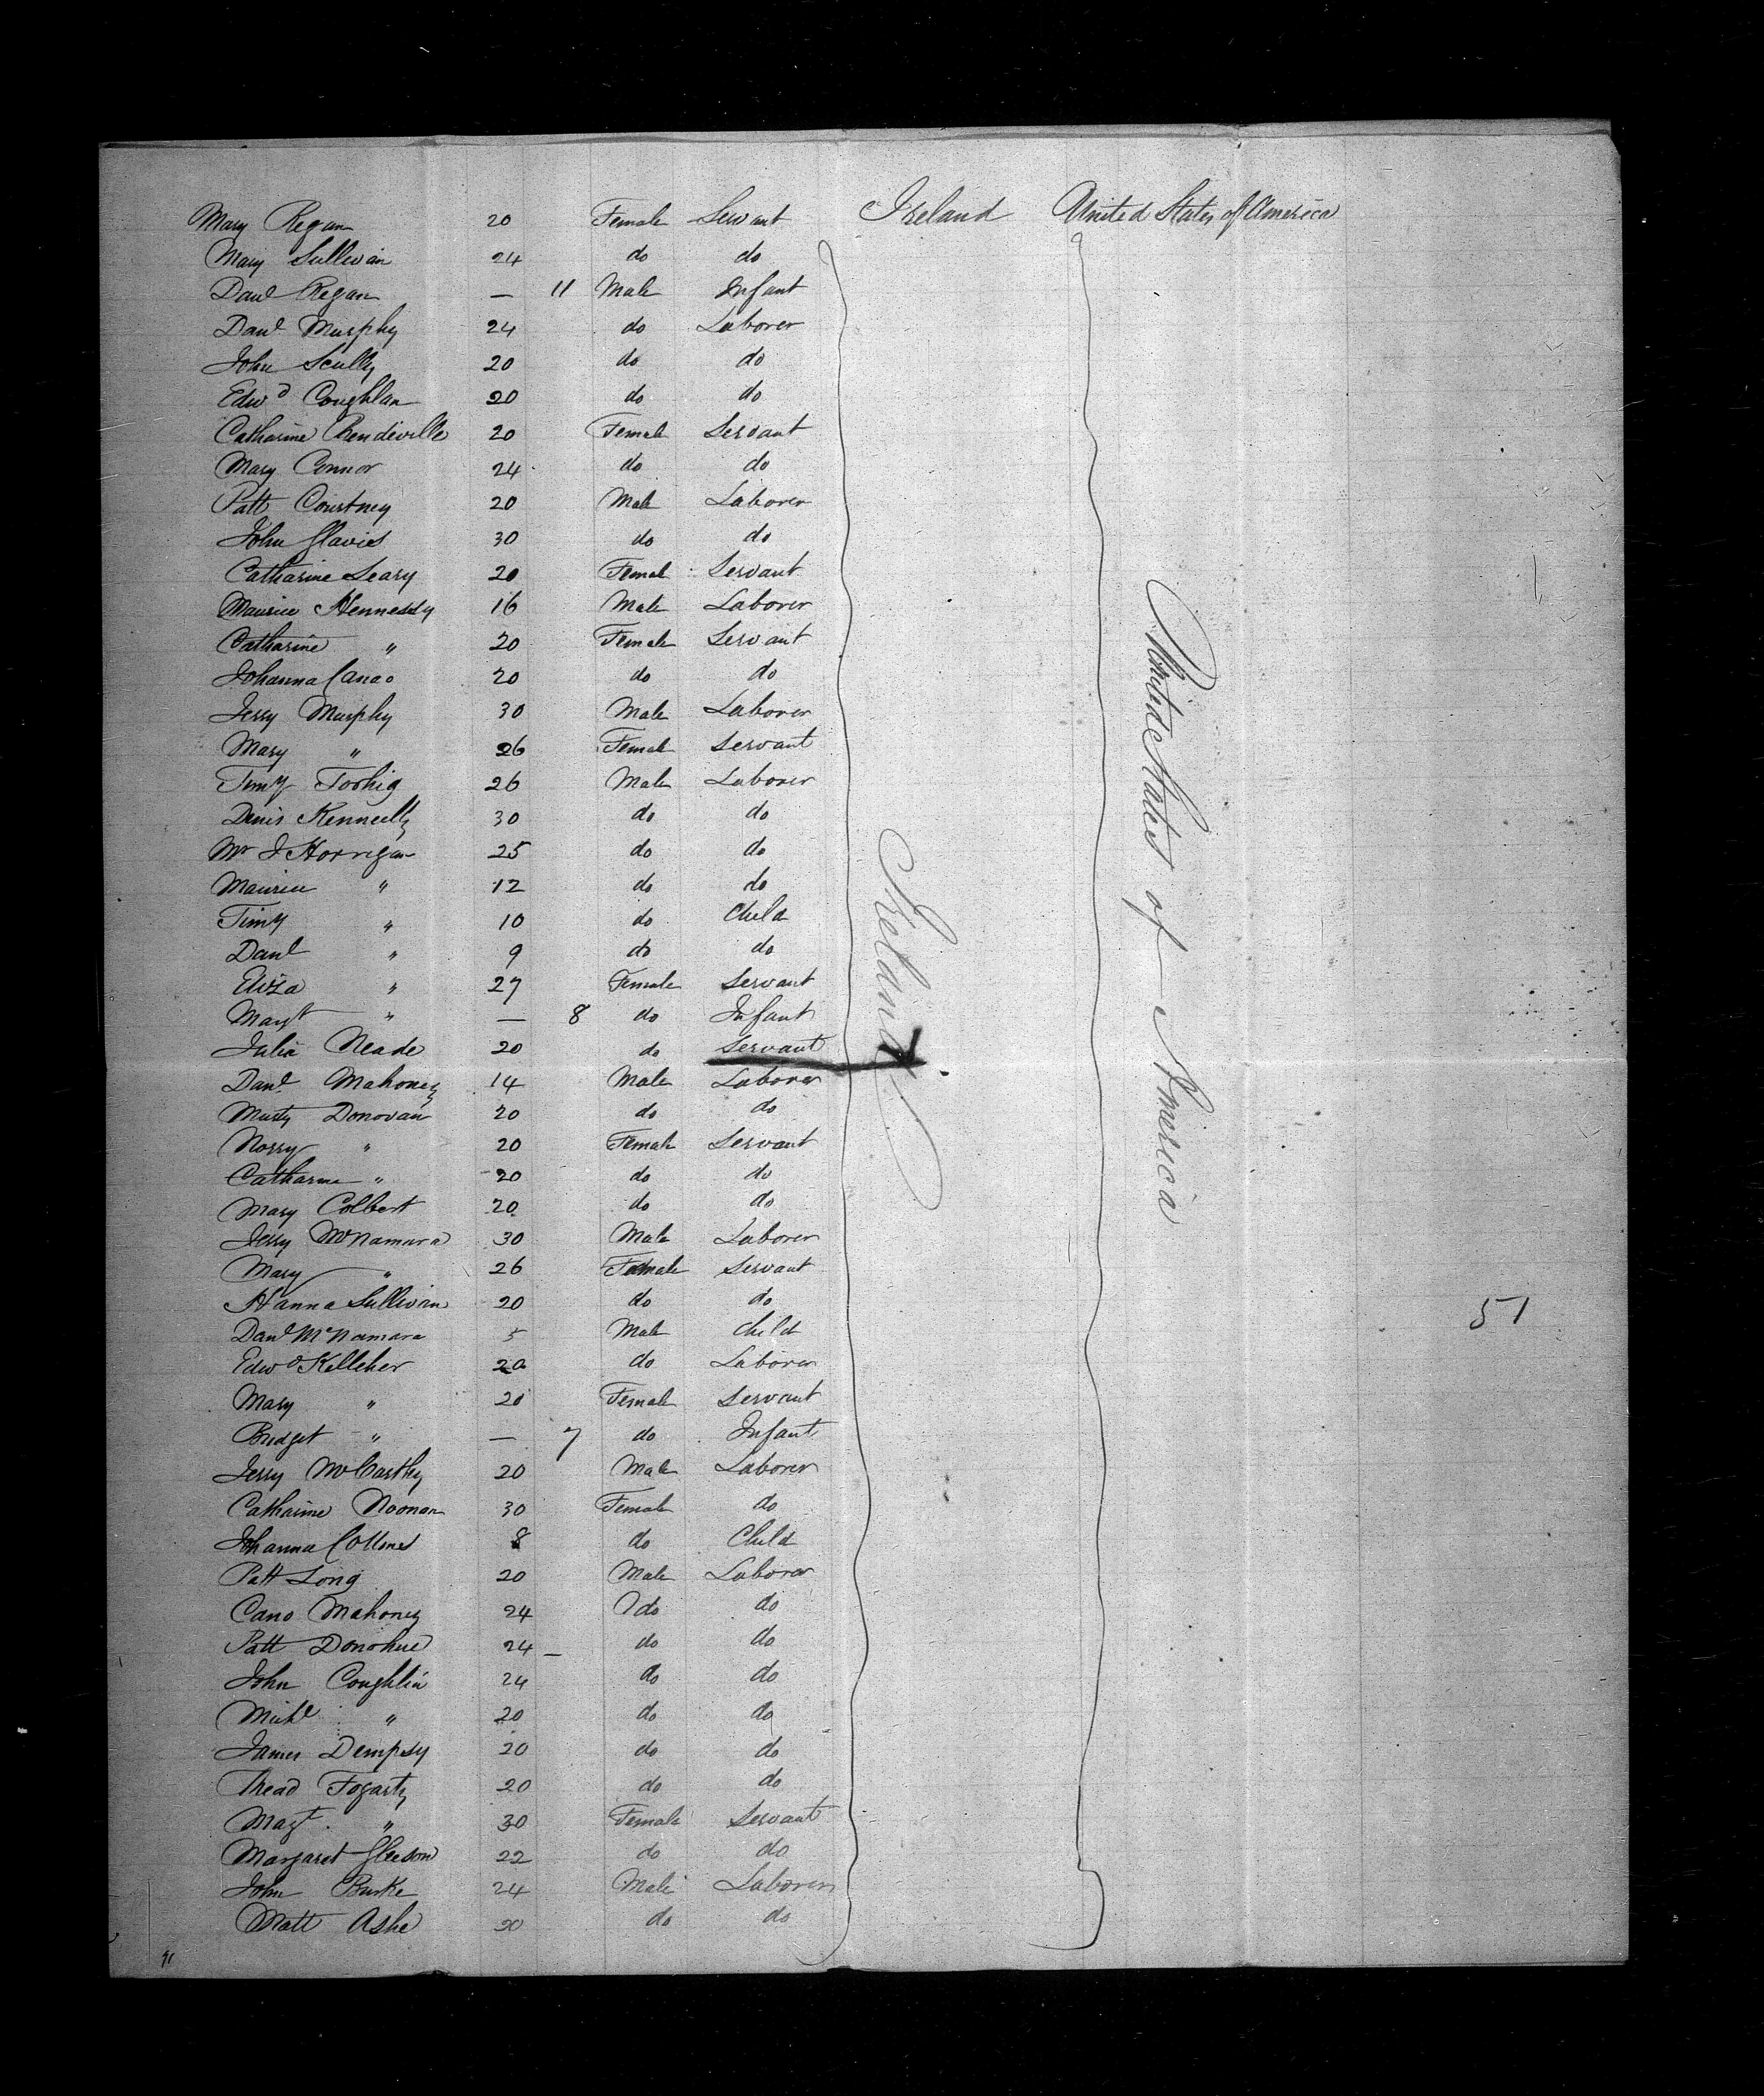 Mary Regan 20 Female Servant Ireland United States of America
Mary Sullivan 24 do do
Danl Regan — 11 Male Infant
Danl Murphy 24 do Laborer
John Scully 20 do do
Edwd Coughlan 20 do do
Catharine Rendeville 20 Female Servant
Mary Connor 24 do do
Patt Courtney 20 Male Laborer
John Glavies 30 do do
Catharine Leary 20 Female Servant
Maurice Hennessy 16 Male Laborer
Catharine " 20 Female Servant
Johanna 20 do do
Jerry Murphy 30 Male Laborer
Mary " 26 Female Servant
Timy Torhig 26 Male Laborer
Denis Kenneelly 30 do do
Mr J Horrigan 25 do do
Maurice " 12 do do
Timy " 10 do Child
Danl " 9 do do
Eliza " 27 Female Servant
Margt " — 8 do Infant
Julia Neade 20 do Servant
Danl Mahoney 14 Male Laborer
Murty Donovan 20 do do
Norry " 20 Female Servant
Catharine " 20 do do
Mary Colbert 20 do do
Jerry McNamara 30 Male Laborer
Mary " 26 Female Servant
Hanna Sullivan 20 do do
Danl McNamara 5 Male Child
Edwd Kelleher 20 do Laborer
Mary " 20 Female Servant
Bridget " — 7 do Infant
Jerry McCarthy 20 Male Laborer
Catharine Noonan 30 Female do
Johanna Collins 8 do Child
Patt Long 20 Male Laborer
Cano Mahoney 24 do do
Patt Donohue 24 — do do
John Coughlin 24 do do
Michl " 20 do do
James Dempsy 20 do do
Thead Fogarty 20 do do
Magt. " 30 Female Servant
Margaret Gleeson 22 do do
John Burke 24 Male Laborer
Matt Ashe 30 do do
Ireland
United States of America
51